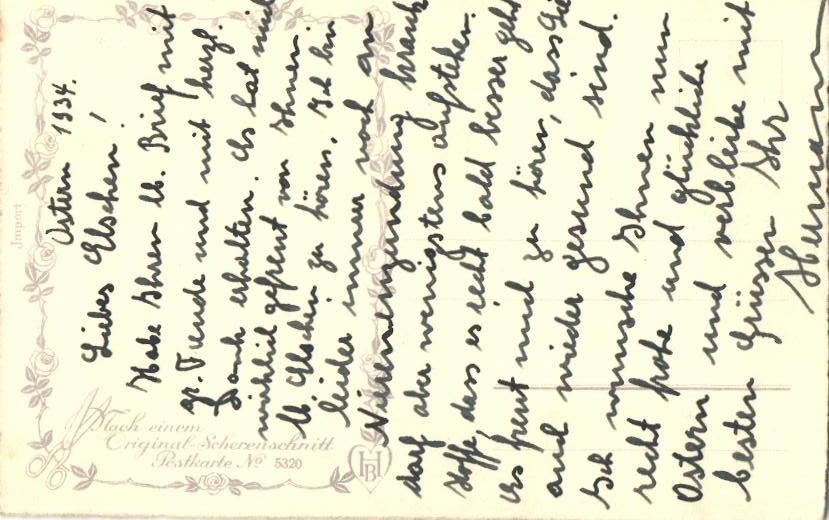 Ostern 1934.
Liebes Elschen!
Habe Ihren lb. Brief mit
gr. Freude und mit herzl.
Dank erhalten. Es hat mich
wirklich gefreut von Ihnen
lb Elschen zu hören. Ich bin
leider immer noch an
Nierenentzündung krank
darf aber wenigstens aufstehen.
Hoffe, dass es recht bald besser geht
Es freut mich zu hören, dass Sie
auch wieder gesund sind.
Ich wünsche Ihnen nun
recht frohe und glückliche
Ostern und verbleibe mit
besten Grüssen Ihr
Hermann
Import
Nach einem
Original-Scherenschnitt
Postkarte Nº 5320
HBI